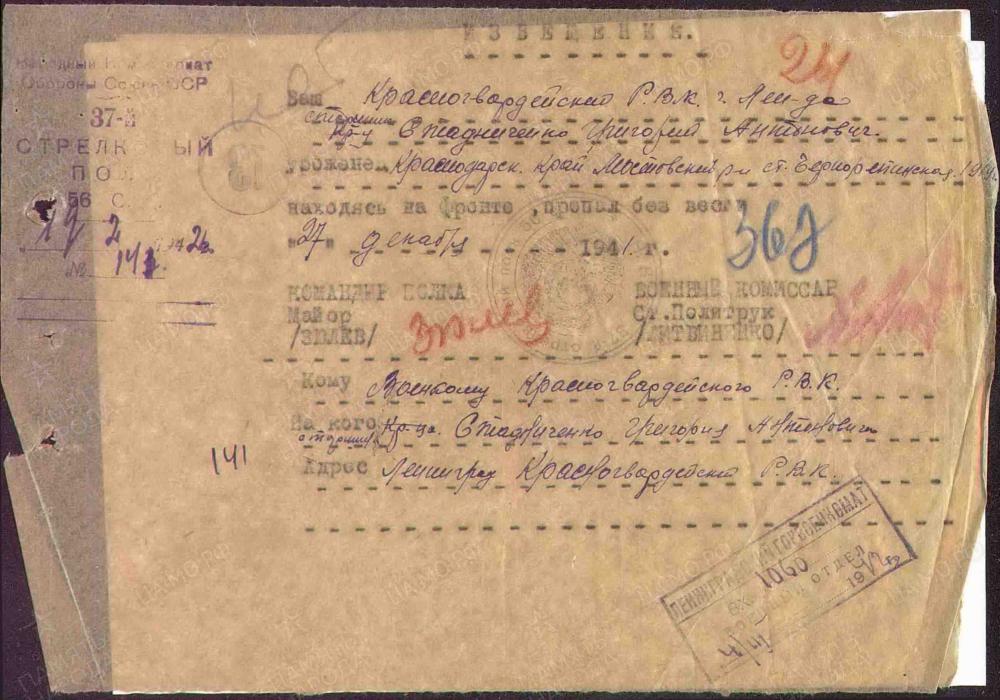 ИЗВЕЩЕНИЕ.
24
Народный Комиссариат
Обороны Союза ССР
37-й
СТРЕЛК ЫЙ
ПОЛ
56 С.
12 2 1942г.
№ 141.
Ваш Красногвардейский Р.В.К. г. Лен-да
Стадниченко Григорий Антонович.
уроженец Краснодарск. край Мостовский р-н ст.
находясь на фронте, пропал без вести
"27" декабря 1941 г.
367
КОМАНДИР ПОЛКА
Майор
/ЗЮЛЕВ/
ВОЕННЫЙ КОМИССАР
Ст.Политрук
/ЛИТВИНЕНКО/
Кому Военкому Красногвардейского Р.В.К.
На кого кр-ца Стадниченко Григория Антоновича
141
Адрес Ленинград Красногвардейский Р.В.К.
ЛЕНИНГРАДСКИЙ ГОРВОЕНКОМАТ
ВХ. 1060
ОТДЕЛ
1942